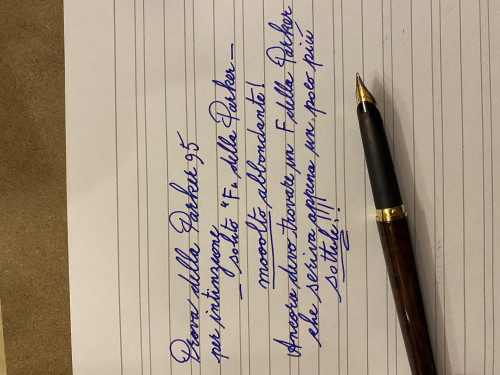 Prova della Parker 95
per intinzione
— solito "F" della Parker —
mooolto abbondante!
Ancora devo trovare un F della Parker
che scriva appena un poco più
sottile!!!!